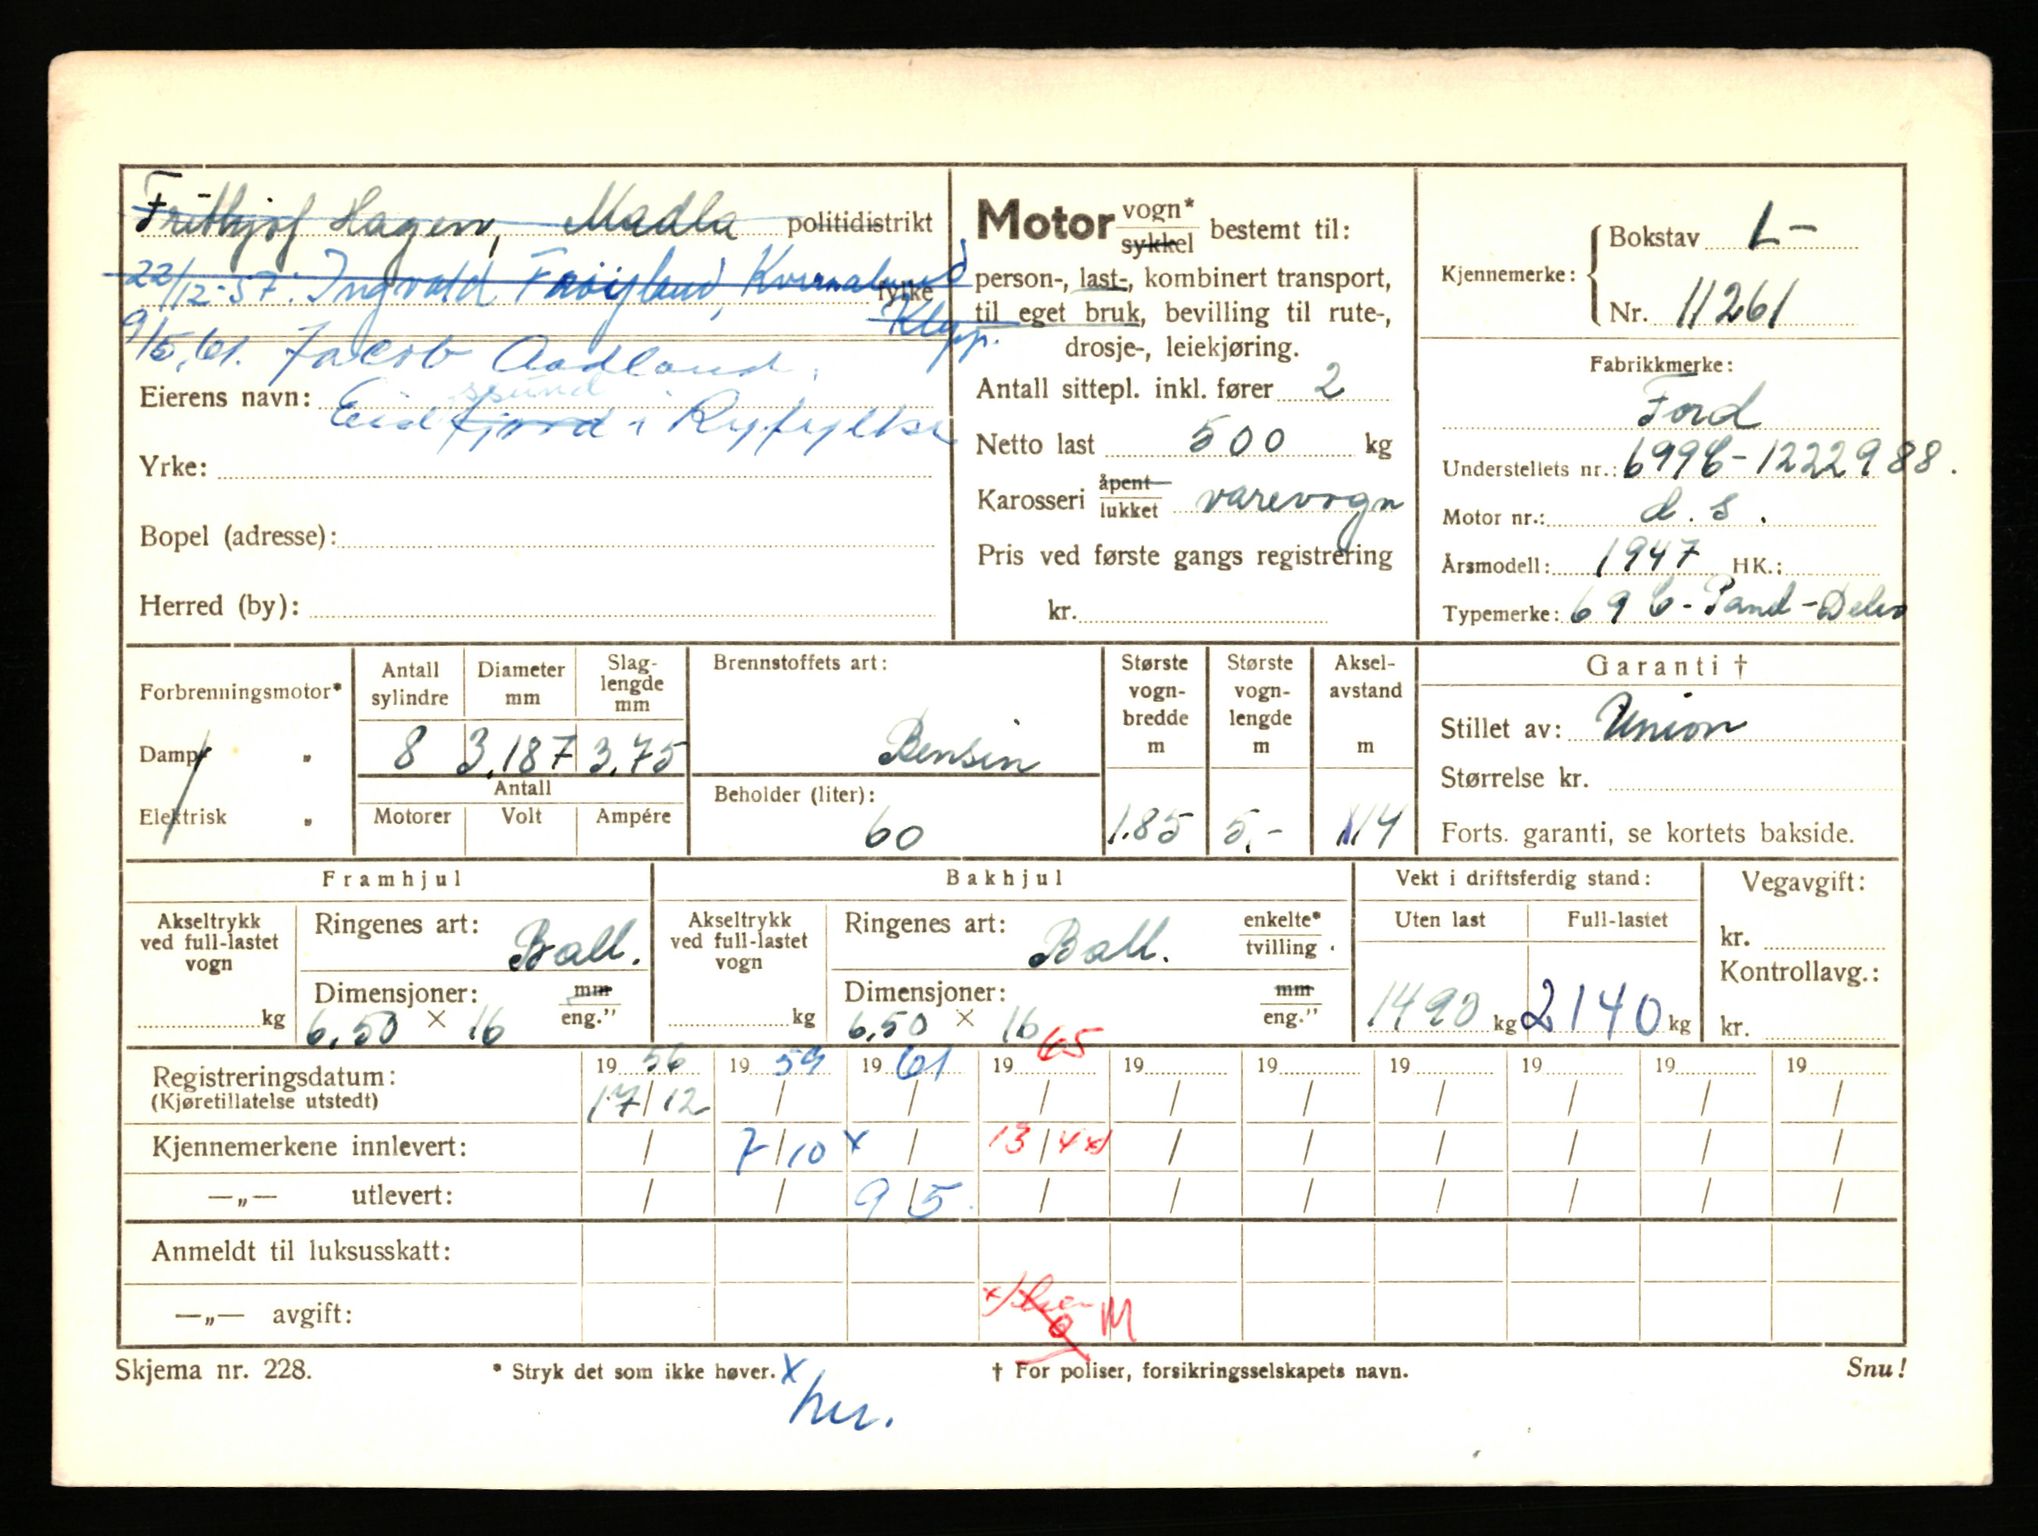 Frithjof Hagen, Madla politidistrikt
22/12-57. Ingvald Frøyland, Kvernaland fylke
Klepp.
9/5.61. Jacob Aadland.
Eierens navn: Eidfjord i Ryfylke
ssund
Yrke:
Bopel (adresse):
Herred (by):
Motor vogn*
sykkel bestemt til:
person-, last-, kombinert transport,
til eget bruk, bevilling til rute-,
drosje-, leiekjøring.
Antall sittepl. inkl. fører 2
Netto last 500 kg
Karosseri åpent
lukket varevogn
Pris ved første gangs registrering
kr.
Kjennemerke: Bokstav L-
Nr. 11261
Fabrikkmerke:
Ford
Understellets nr.: 699C-1222988.
Motor nr.: d.s.
Årsmodell: 1947 HK.:
Typemerke: 69 C-
Forbrenningsmotor*
Damp „
Elektrisk „
Antall sylindre 8
Diameter mm 3.187
Slag-lengde mm 3.75
Antall
Motorer Volt Ampére
Brennstoffets art:
Bensin
Beholder (liter):
60
Største vogn-bredde m 1.85
Største vogn-lengde m 5,-
Aksel-avstand m
Garanti †
Stillet av: Union
Størrelse kr.
Forts. garanti, se kortets bakside.
Framhjul
Akseltrykk ved full-lastet vogn
kg
Ringenes art: Ball.
Dimensjoner: mm
6.50 × 16 eng."
Bakhjul
Akseltrykk ved full-lastet vogn
kg
Ringenes art: Ball. enkelte*
tvilling.
Dimensjoner: mm
6.50 × 16 eng."
Vekt i driftsferdig stand:
Uten last Full-lastet
1490 kg 2140 kg
Vegavgift:
kr.
Kontrollavg.:
kr.
Registreringsdatum: 1956 1959 1961 1965 19 19 19 19 19 19
(Kjøretillatelse utstedt) 17/12 / / / / / / / / /
Kjennemerkene innlevert: / 7/10 x / 13/4 x) / / / / / /
—„— utlevert: / / 9/5. / / / / / / /
Anmeldt til luksusskatt:
—„— avgift:
x) M
Skjema nr. 228. * Stryk det som ikke høver. x † For poliser, forsikringsselskapets navn. Snu!
her.